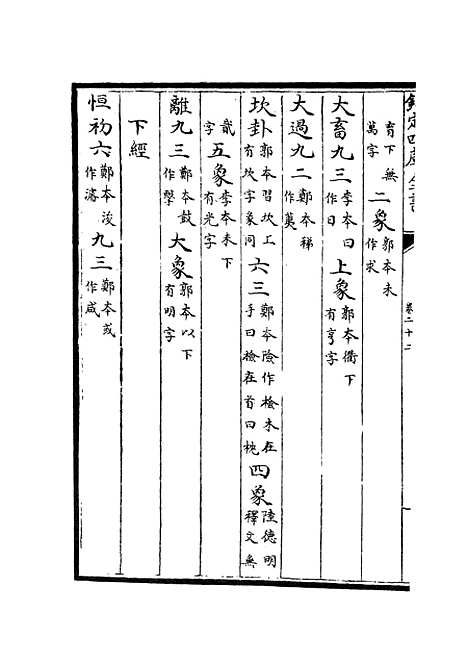 欽定四庫全書 卷二十二
育下無萬字 二象 郭本未作求
大畜九三 李本曰作日 上象 郭本衢下有亨字
大過九二 鄭本稊作荑
坎卦 郭本習坎上有坎字象同 六三 鄭本險作檢木在手曰檢在首曰枕 四象 陸德明釋文無
貳字 五象 李本未下有光字
離九三 鄭本鼓作擊 大象 郭本以下有明字
下經
恒初六 鄭本浚作濬 九三 鄭本或作咸